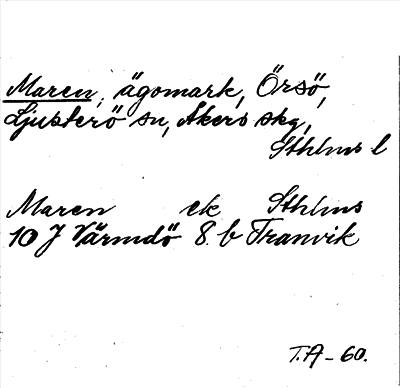 Maren, ägomark, Örsö,
Ljusterö sn, Åkers skg,
Sthlms l
Maren ek Sthlms
10 J Värmdö 8 b Tranvik
T.A-60.